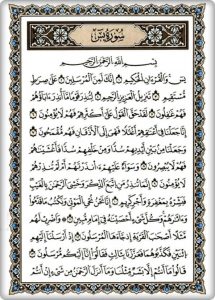 سُورَةُ يٰسٓ
بِسْمِ اللَّهِ الرَّحْمٰنِ الرَّحِيمِ
يٰسٓ ۝ وَالْقُرْآنِ الْحَكِيمِ ۝ إِنَّكَ لَمِنَ الْمُرْسَلِينَ ۝ عَلٰى صِرَاطٍ
مُسْتَقِيمٍ ۝ تَنْزِيلَ الْعَزِيزِ الرَّحِيمِ ۝ لِتُنْذِرَ قَوْمًا مَا أُنْذِرَ آبَاؤُهُمْ
فَهُمْ غَافِلُونَ ۝ لَقَدْ حَقَّ الْقَوْلُ عَلٰى أَكْثَرِهِمْ فَهُمْ لَا يُؤْمِنُونَ ۝
إِنَّا جَعَلْنَا فِي أَعْنَاقِهِمْ أَغْلَالًا فَهِيَ إِلَى الْأَذْقَانِ فَهُمْ مُقْمَحُونَ ۝
وَجَعَلْنَا مِنْ بَيْنِ أَيْدِيهِمْ سَدًّا وَمِنْ خَلْفِهِمْ سَدًّا فَأَغْشَيْنَاهُمْ
فَهُمْ لَا يُبْصِرُونَ ۝ وَسَوَاءٌ عَلَيْهِمْ أَأَنْذَرْتَهُمْ أَمْ لَمْ تُنْذِرْهُمْ
لَا يُؤْمِنُونَ ۝ إِنَّمَا تُنْذِرُ مَنِ اتَّبَعَ الذِّكْرَ وَخَشِيَ الرَّحْمٰنَ بِالْغَيْبِ
فَبَشِّرْهُ بِمَغْفِرَةٍ وَأَجْرٍ كَرِيمٍ ۝ إِنَّا نَحْنُ نُحْيِ الْمَوْتٰى وَنَكْتُبُ مَا قَدَّمُوا
وَآثَارَهُمْ وَكُلَّ شَيْءٍ أَحْصَيْنَاهُ فِي إِمَامٍ مُبِينٍ ۝ وَاضْرِبْ لَهُمْ
مَثَلًا أَصْحَابَ الْقَرْيَةِ إِذْ جَاءَهَا الْمُرْسَلُونَ ۝ إِذْ أَرْسَلْنَا إِلَيْهِمُ
اثْنَيْنِ فَكَذَّبُوهُمَا فَعَزَّزْنَا بِثَالِثٍ فَقَالُوا إِنَّا إِلَيْكُمْ مُرْسَلُونَ ۝
قَالُوا مَا أَنْتُمْ إِلَّا بَشَرٌ مِثْلُنَا وَمَا أَنْزَلَ الرَّحْمٰنُ مِنْ شَيْءٍ إِنْ أَنْتُمْ